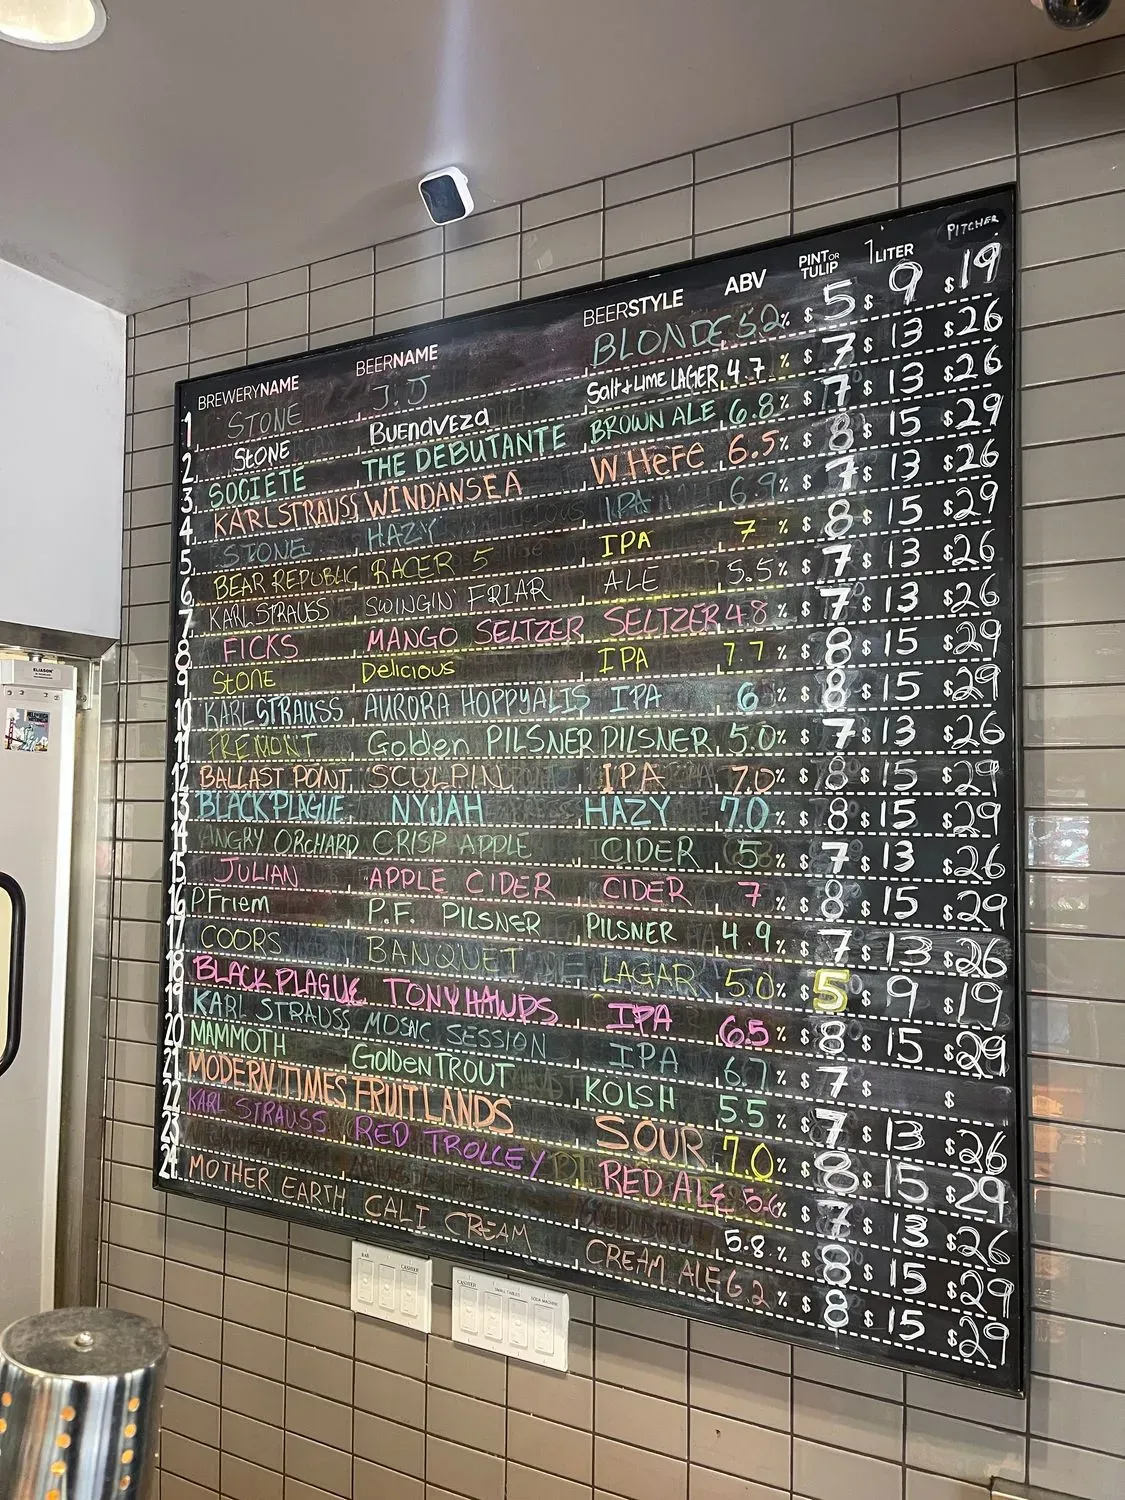 BREWERYNAME BEERNAME BEERSTYLE ABV PINT OR TULIP 1 LITER PITCHER
1 STONE J.J BLONDE 5.2% $5 $9 $19
2 STONE Buenaveza Salt & LIME LAGER 4.7% $7 $13 $26
3 SOCIETE THE DEBUTANTE BROWN ALE 6.8% $7 $13 $26
4 KARL STRAUSS WINDANSEA W.HeFe 6.5% $8 $15 $29
5 STONE HAZY IPA 6.9% $7 $13 $26
6 BEAR REPUBLIC RACER 5 IPA 7% $8 $15 $29
7 KARL STRAUSS SWINGIN' FRIAR ALE 5.5% $7 $13 $26
8 FICKS MANGO SELTZER SELTZER 4.8% $7 $13 $26
9 StONE Delicious IPA 7.7% $8 $15 $29
10 KARL STRAUSS AURORA HOPPYALIS IPA 6% $8 $15 $29
11 FREMONT Golden PILSNER PILSNER 5.0% $7 $13 $26
12 BALLAST POINT SCULPIN IPA 7.0% $8 $15 $29
13 BLACK PLAGUE NYJAH HAZY 7.0% $8 $15 $29
14 ANGRY ORCHARD CRISP APPLE CIDER 5% $7 $13 $26
15 JULIAN APPLE CIDER CIDER 7% $8 $15 $29
16 PFriem P.F. PILSNER PILSNER 4.9% $7 $13 $26
17 COORS BANQUET LAGAR 5.0% $5 $9 $19
18 BLACK PLAGUE TONYHAWDS IPA 6.5% $8 $15 $29
19 KARL STRAUSS MOSAIC SESSION IPA 6.7% $7 $ $
20 MAMMOTH Golden TROUT KOLSH 5.5% $7 $13 $26
21 MODERN TIMES FRUITLANDS SOUR 7.0% $8 $15 $29
22 KARL STRAUSS RED TROLLEY RED ALE 5.6% $7 $13 $26
23 5.8% $8 $15 $29
24 MOTHER EARTH CALI CREAM CREAM ALE 6.2% $8 $15 $29
ELIASON
BAR CASHIER
CASHIER SMALL TABLES SODA MACHINE